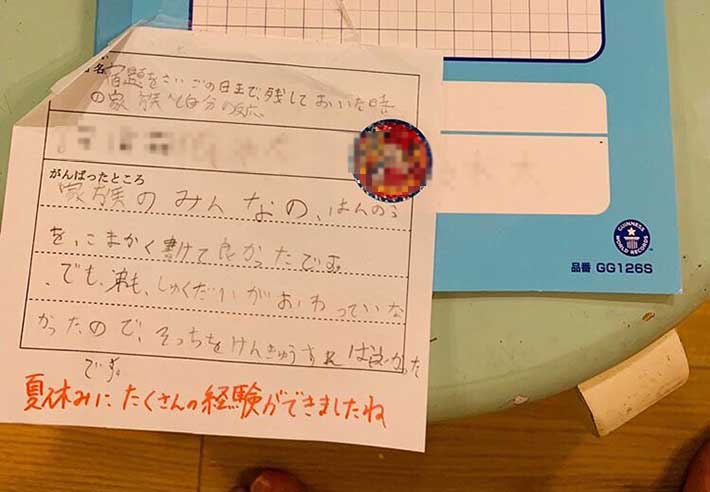 名
宿題をさいごの日まで、残しておいた時
の家族や自分の反応
がんばったところ
家族のみんなの、はんのう
を、こまかく書けて良かったです。
でも、弟も、しゅくだいがおわっていな
かったので、そっちをけんきゅうすれば良かった
です。
夏休みにたくさんの経験ができましたね
GUINNESS
WORLD RECORDS
品番 GG126S